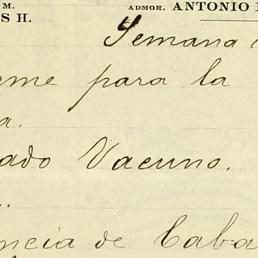 M.
ADMOR. ANTONIO
S H.
Semana
eme para la
a.
ado Vacuno.
..
ncia de Caba